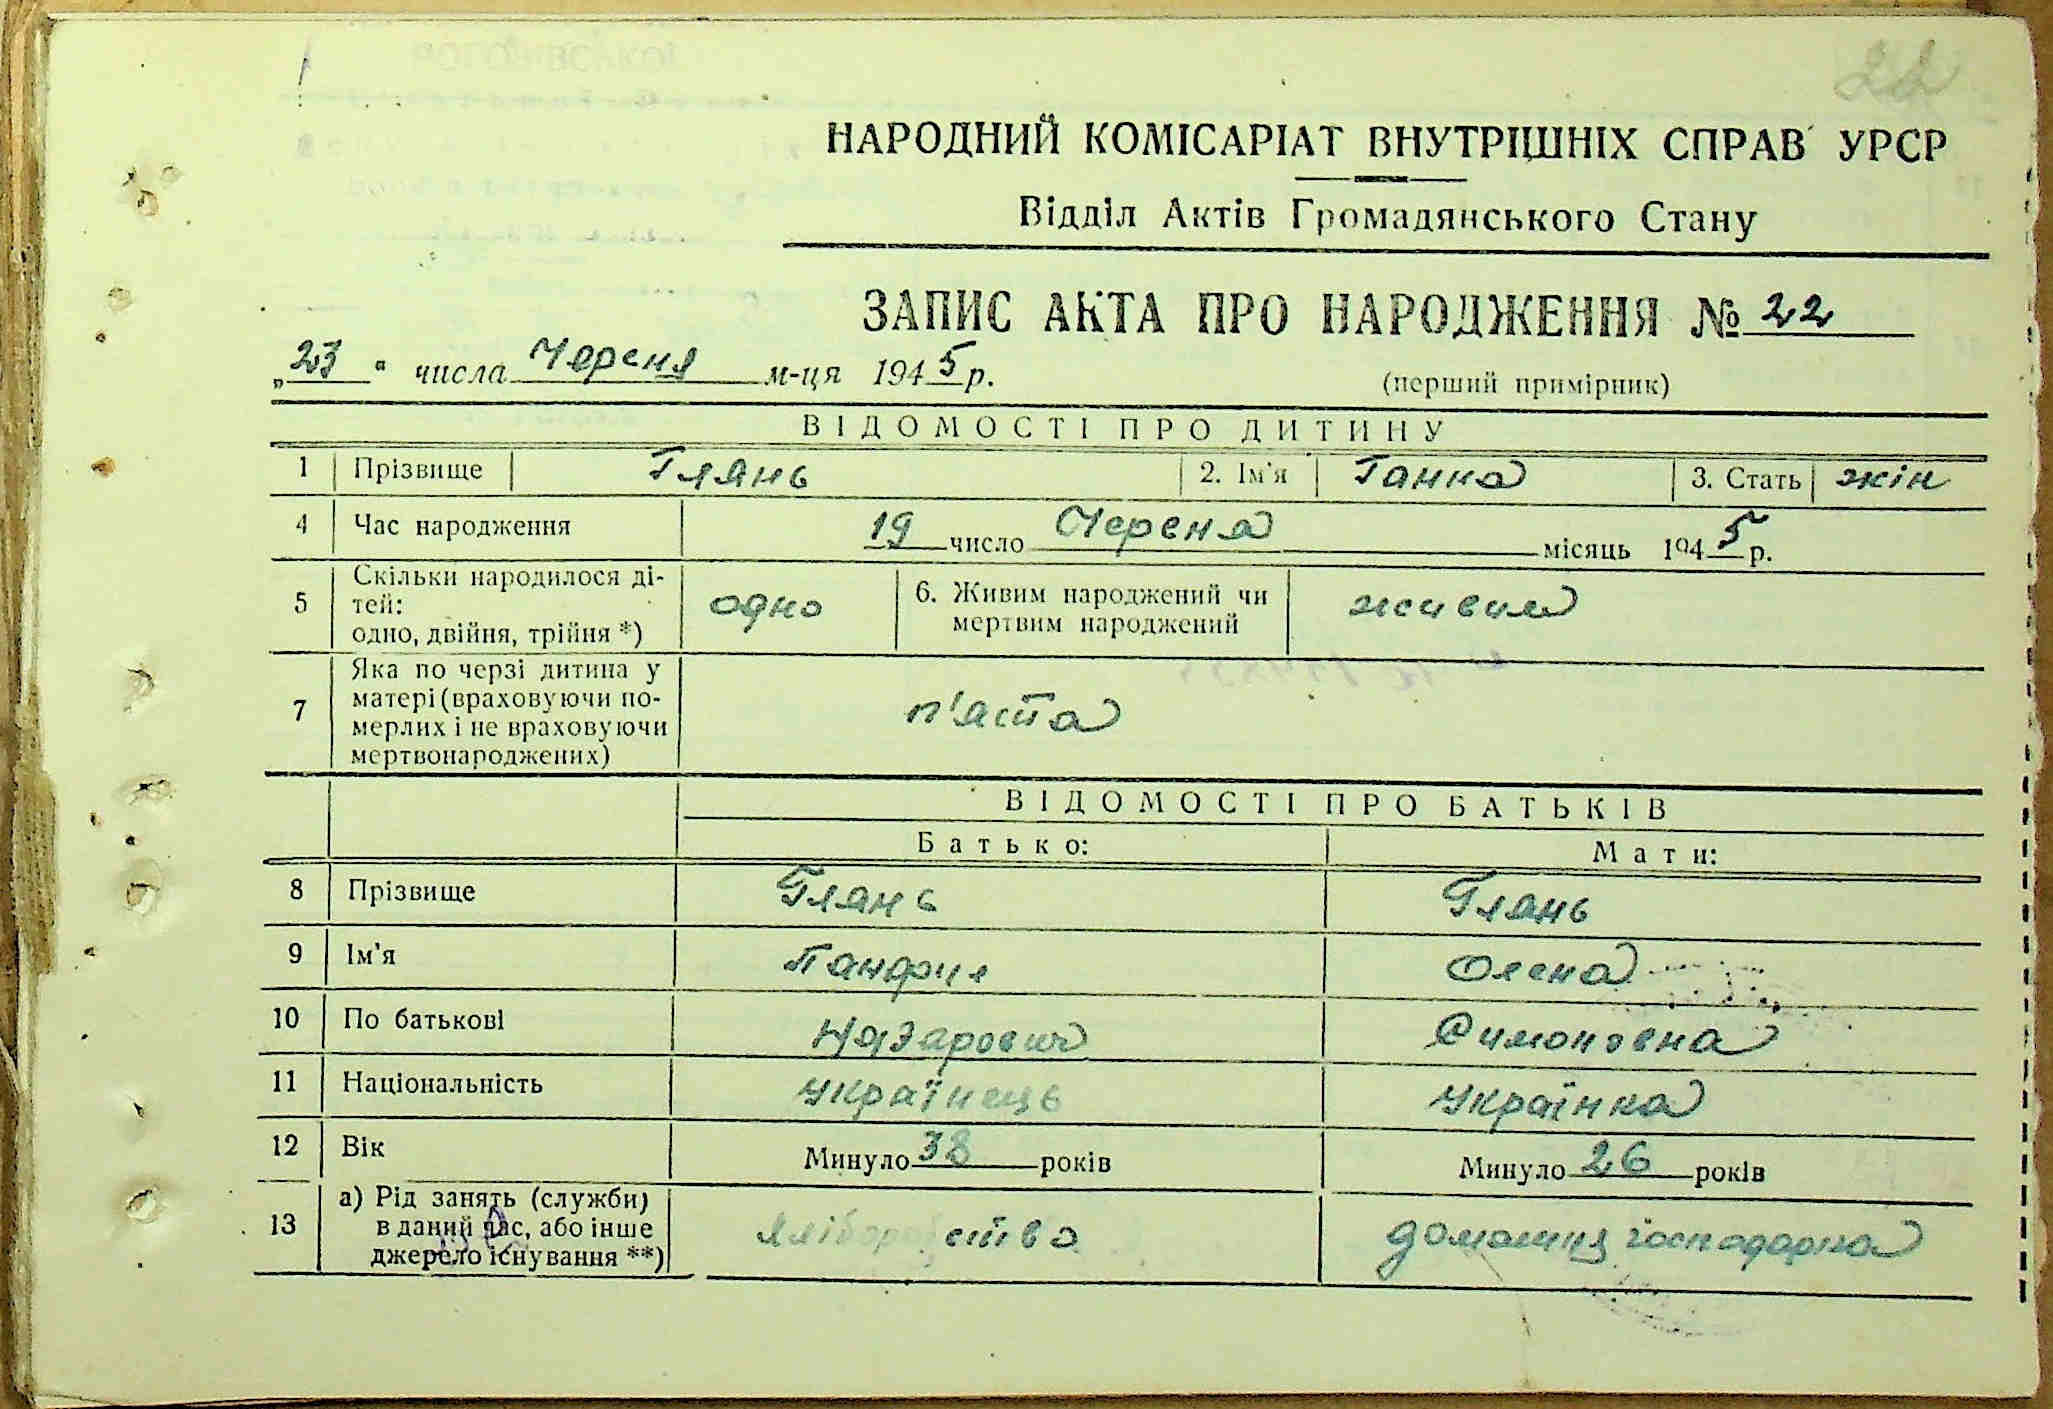 22
НАРОДНИЙ КОМІСАРІАТ ВНУТРІШНІХ СПРАВ УРСР
Відділ Актів Громадянського Стану
ЗАПИС АКТА ПРО НАРОДЖЕННЯ № 22
„23“ числа Череня м-ця 1945 р. (перший примірник)
ВІДОМОСТІ ПРО ДИТИНУ
1 Прізвище Глянь 2. Ім'я Ганна 3. Стать жін
4 Час народження 19 число Череня місяць 1945 р.
5 Скільки народилося ді-
тей:
одно, двійня, трійня *) одно 6. Живим народжений чи
мертвим народжений живим
7 Яка по черзі дитина у
матері (враховуючи по-
мерлих і не враховуючи
мертвонароджених) п'ята
ВІДОМОСТІ ПРО БАТЬКІВ
Батько: Мати:
8 Прізвище Глянь Глянь
9 Ім'я Панфил Олена
10 По батькові Назарович Симоновна
11 Національність Українець Українка
12 Вік Минуло 38 років Минуло 26 років
13 а) Рід занять (служби)
в даний час, або інше
джерело існування **) хліборобство домашня господарка